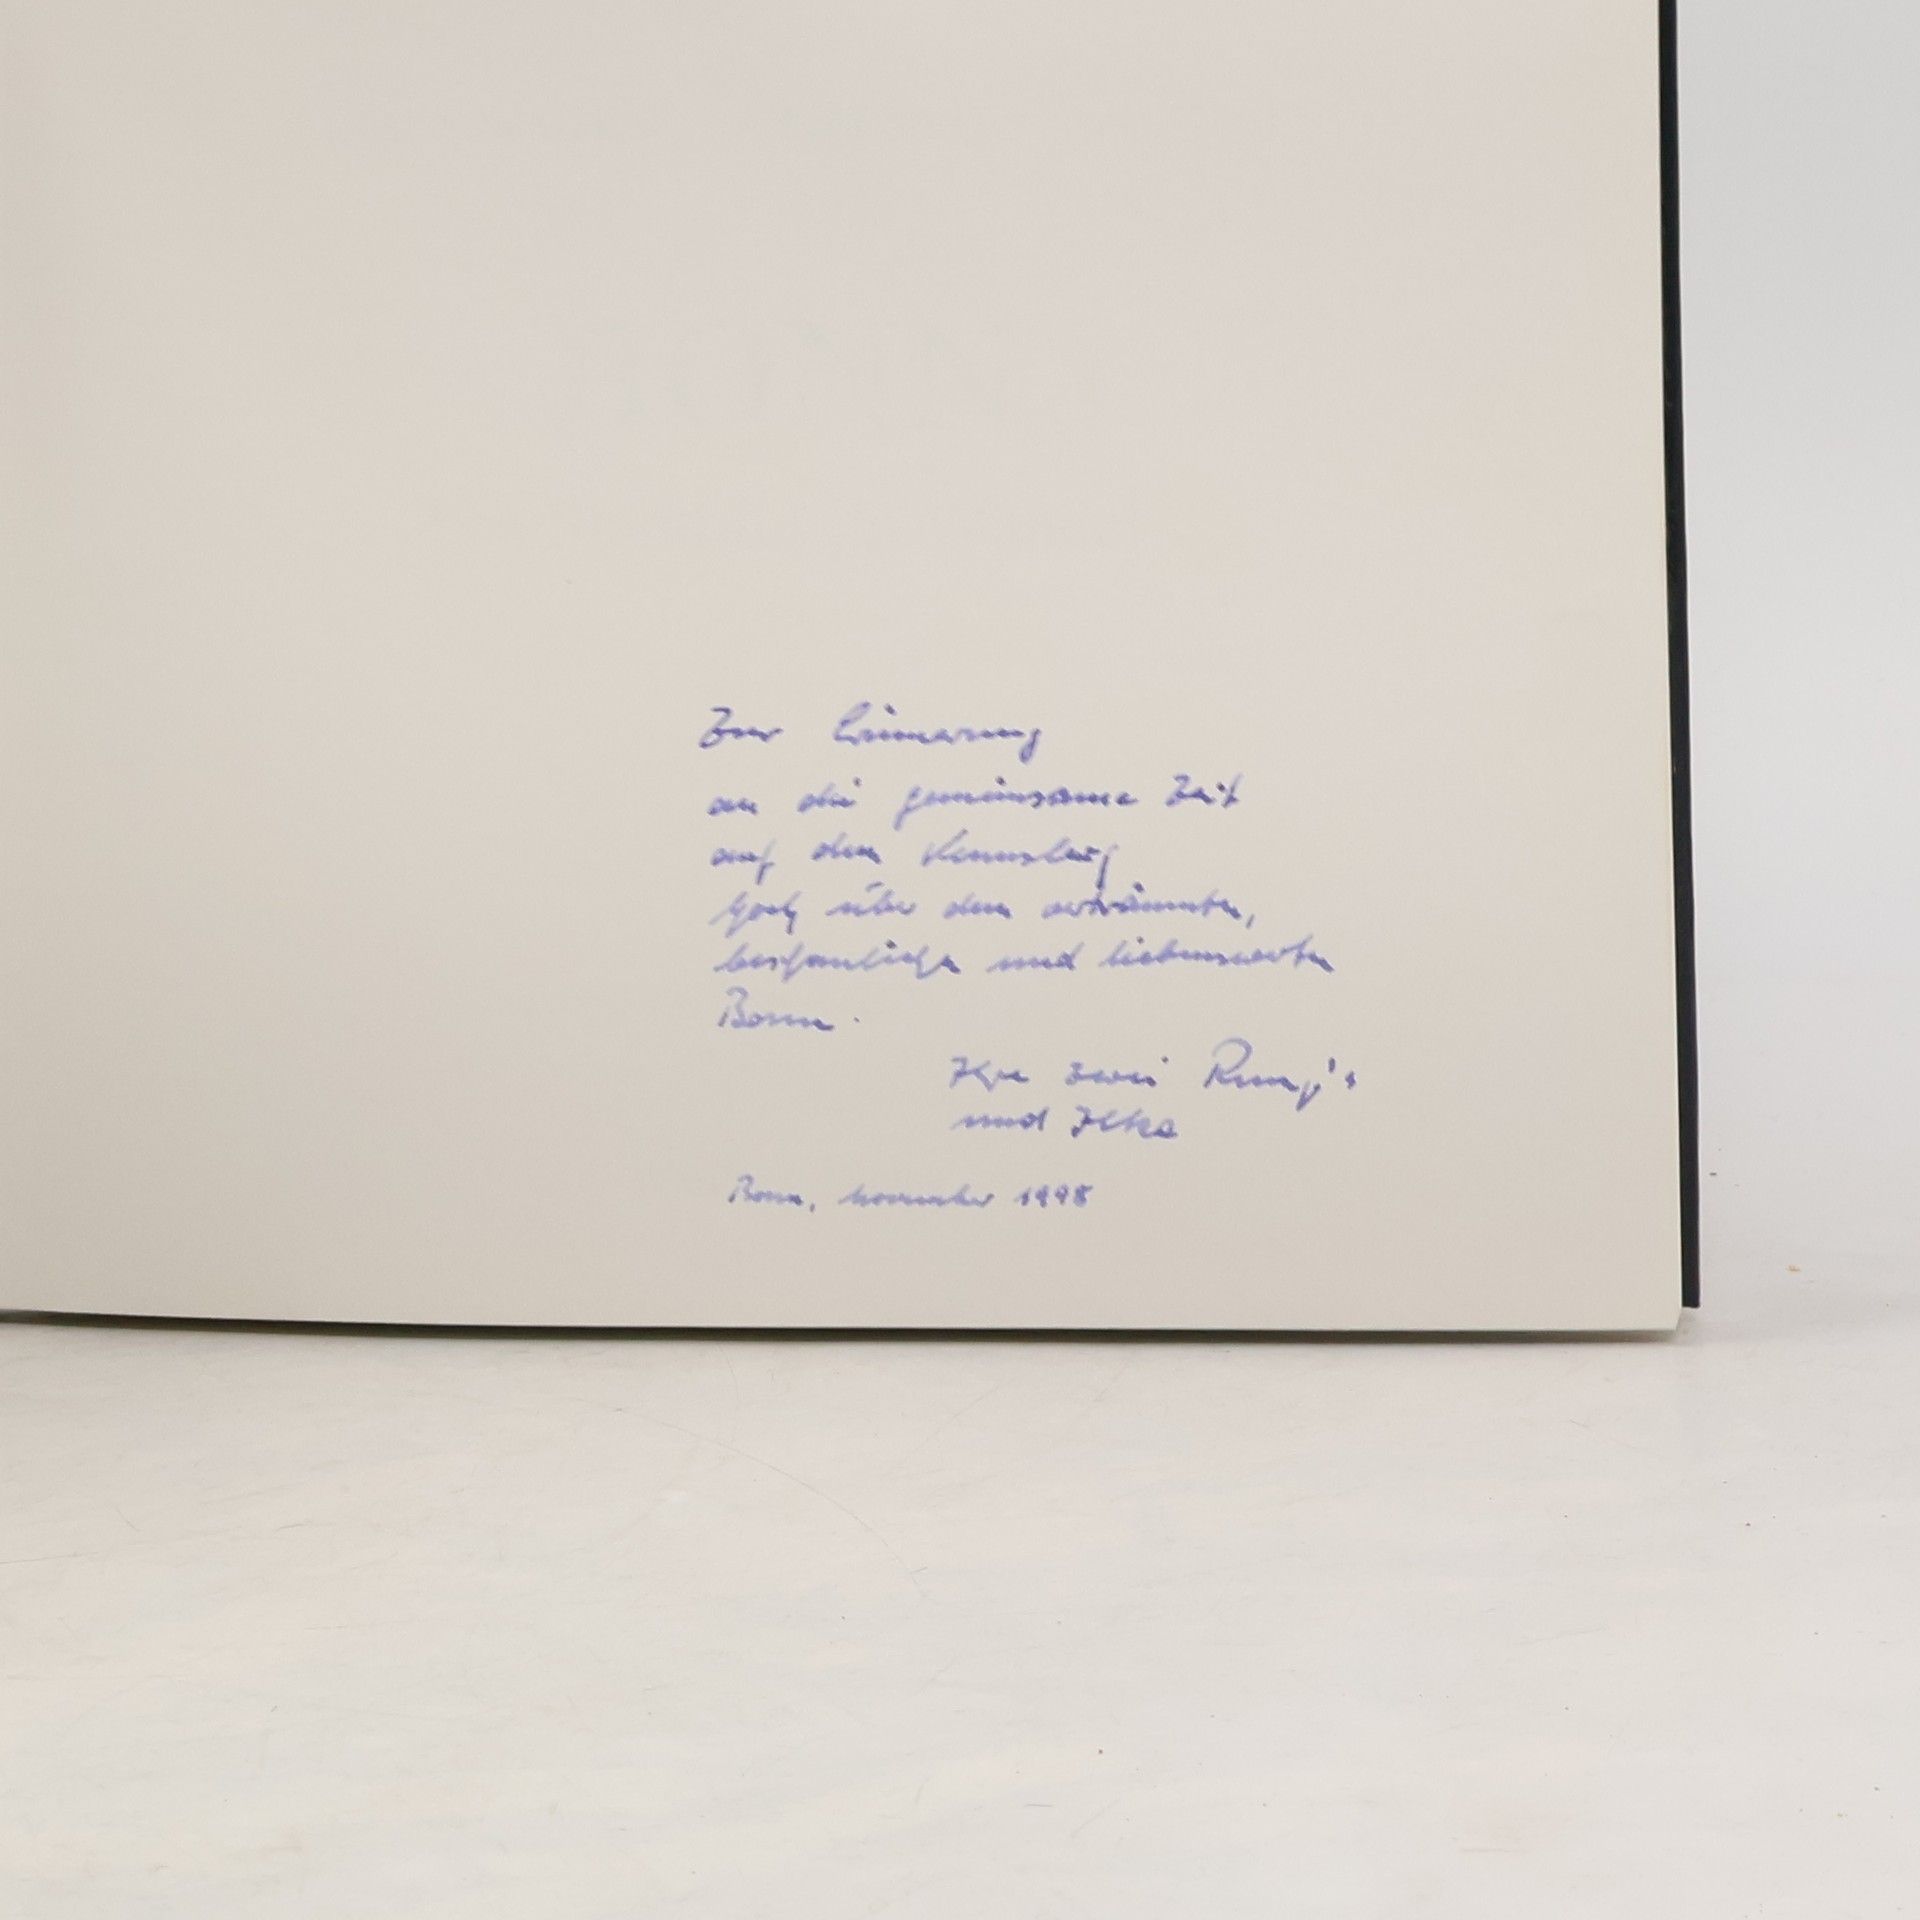 Zur Erinnerung
an die gemeinsame Zeit
auf dem Venusberg
hoch über dem verträumten,
beschaulichen und liebenswerten
Bonn.
Ihre zwei
und Ilka
Bonn, November 1998